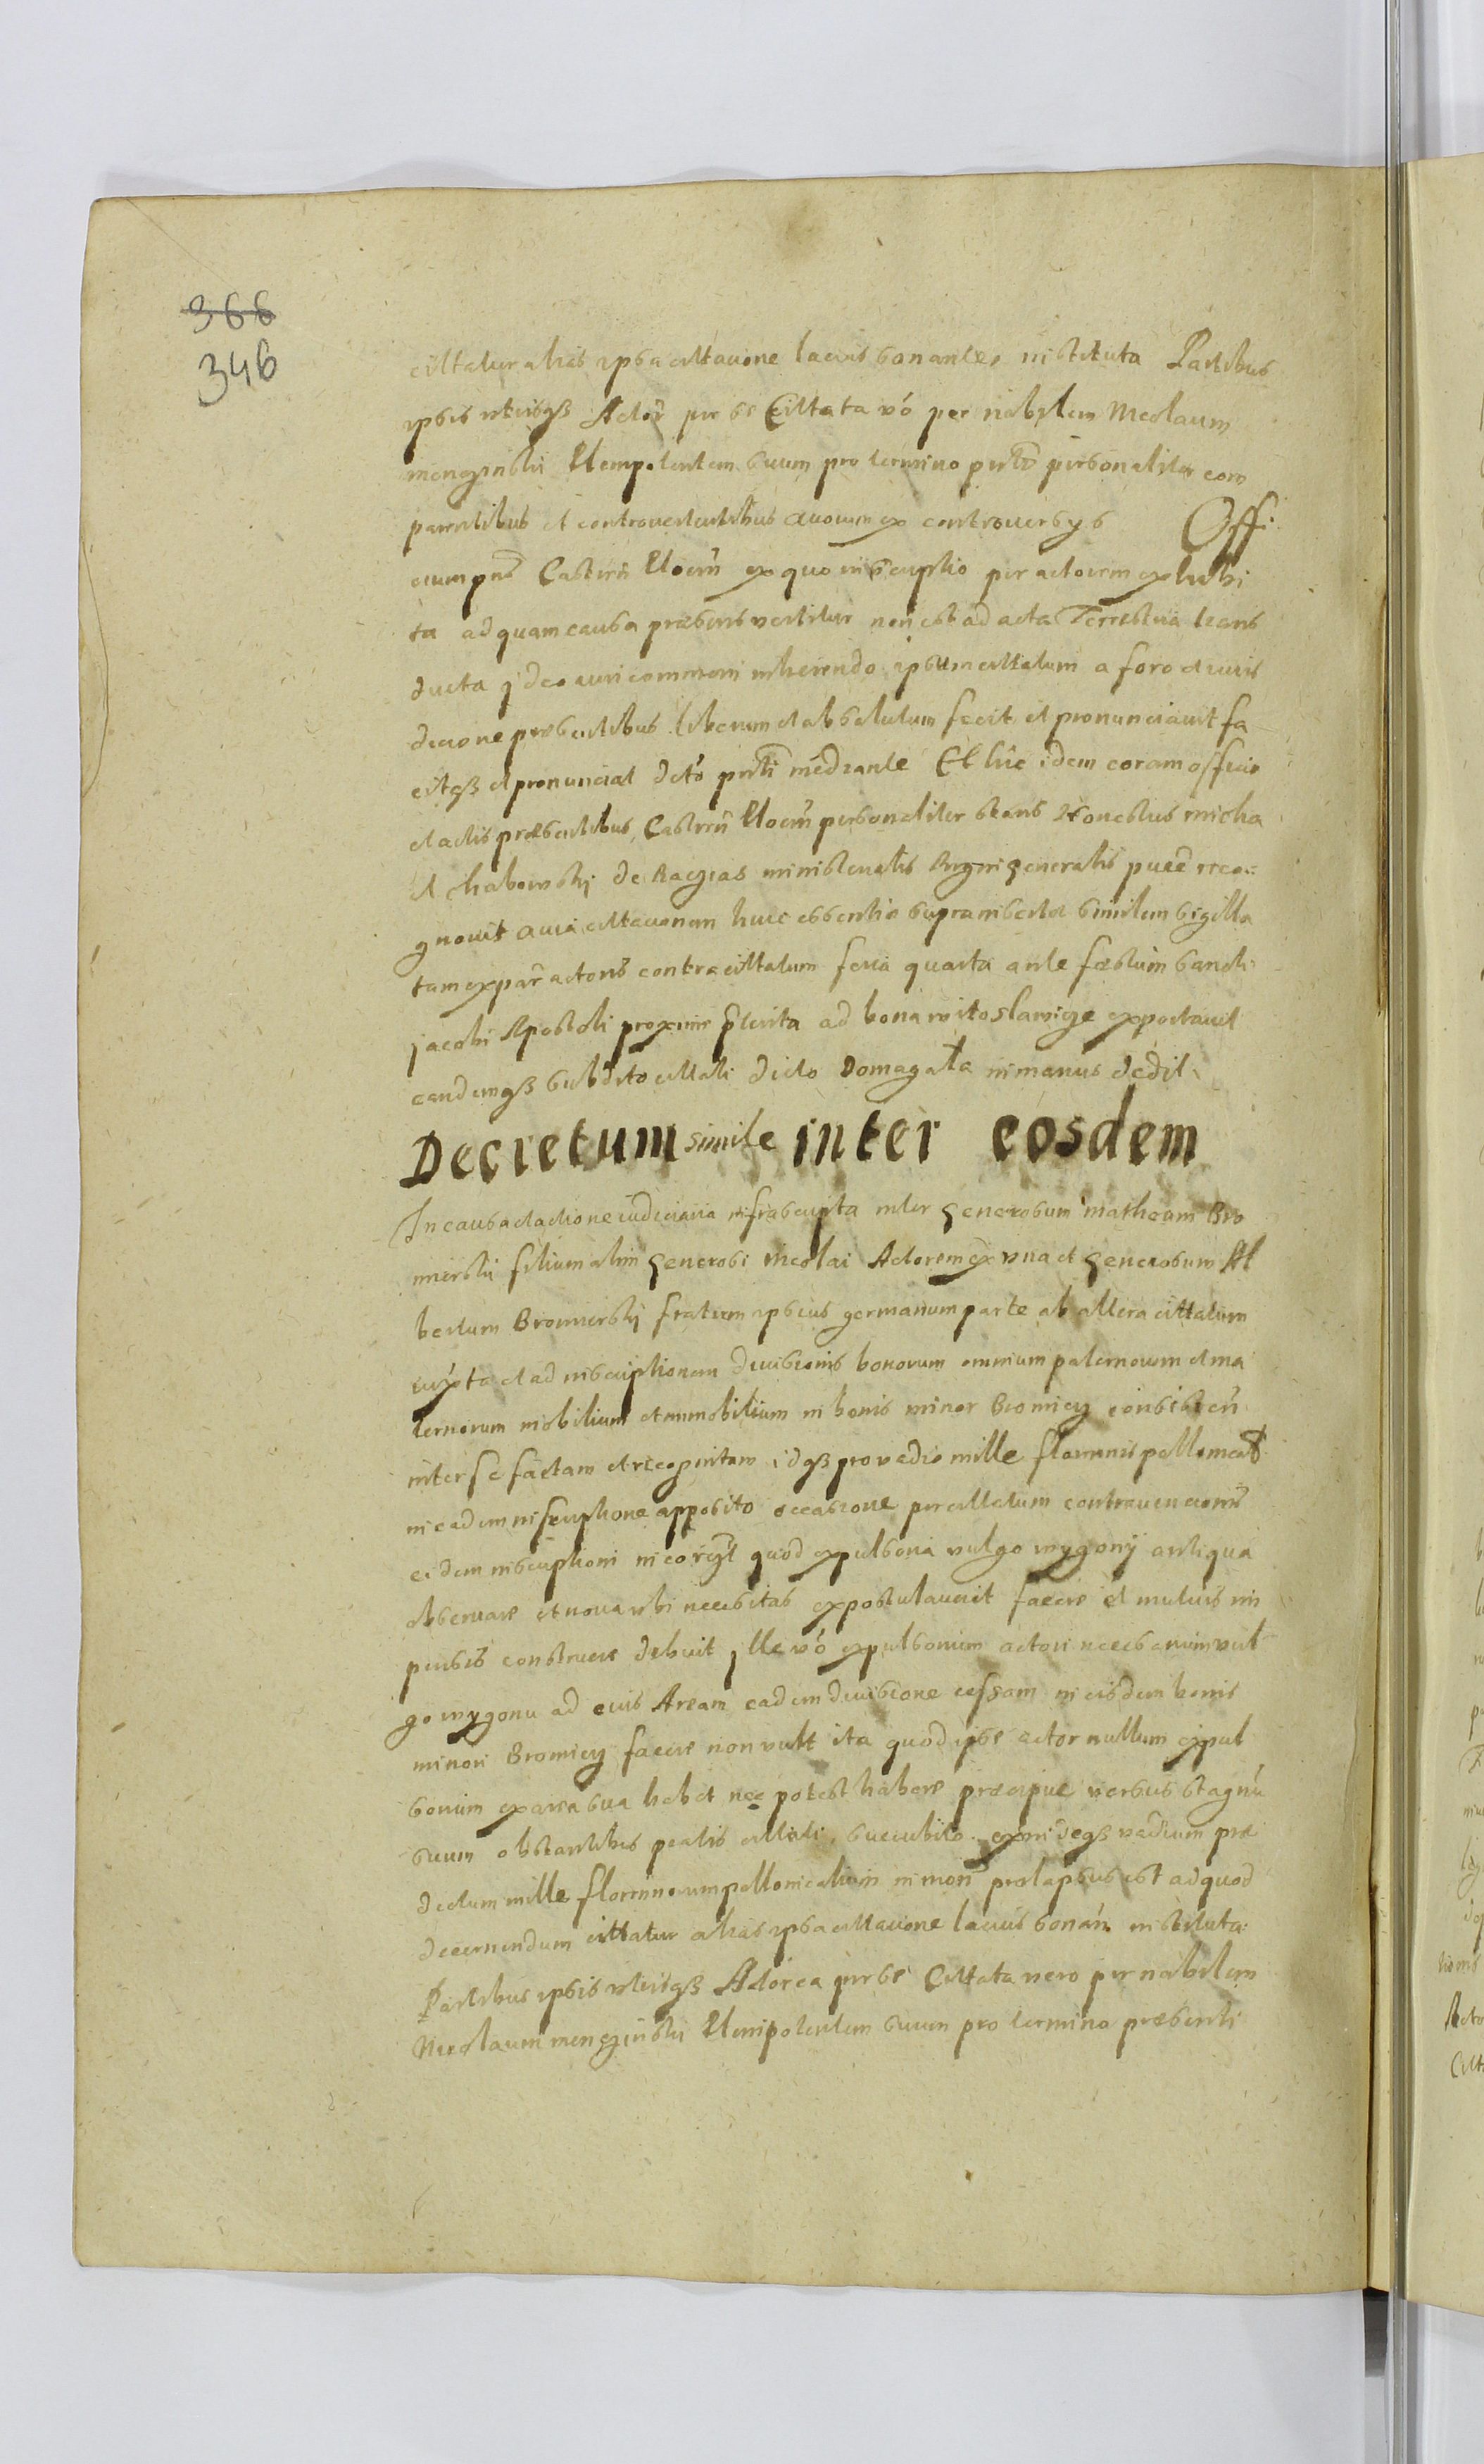 366
346
cittatur alias ipsa cittatione lacius sonante, instituta Partibus
ipsis utrisqß Actor per se Cittata vó per nobilem Nicolaum
mengzinski Plenipotentem suum pro termino pnti personaliter com
parentibus et controvertentibus quorum ex controversys Offi
cium pns Castren Plocen ex quo inscriptio per actorem exhibi
ta ad quam causa præsens vertitur non est ad acta Terrestria trans
ducta ideo iuri communi inherendo ipsum cittatum a foro et iuris
dicione præsentibus liberum et absolutum fecit et pronunciavit fa
citqß et pronunciat dcto pnti mediante Et hic idem coram officio
et actis præsentibus Castren Plocen personaliter stans Honestus micha
el chabowskj de Raczias ministerialis Regni generalis pure reco-
gnovit quia cittacionem huic essentio suprainserta similem sigilla
tam ex par actoris contra cittatum feria quarta ante festum sancti
jacobi Apostoli proxime pterita ad bona witoslawicze exportavit
eandemqß subdito cittati dicto Domagała in manus dedit
Decretum simile inter eosdem
In causa et actione iudiciaria infrascripta inter generosum matheum Bro
mierski filium olim generosi Nicolai Actorem ex una et generosum Al
bertum Bromierskj fratrem ipsius germanum parte ab altera cittatum
iuxta et ad inscriptionem divisionis bonorum omnium paternorum et ma
ternorum mobilium et immobilium in bonis minor Bromierz consisten
inter se factam et recognitam idqß pro vadio mille florenis pollonicat
in eadem inscriptione apposito occasione per cittatum contravencionis
eidem inscriptioni in eo quod expulsoria vulgo wygony antiqua
observare et nova ubi necessitas expostulaverit facere et mutuis im
pensis construere debuit jlle vó expulsorium actori necessarium vul
go wygonu ad eius Aream eadem divisione cessam in eisdem bonis
minori Bromierz facere non vult ita quod ipse actor nullum expul
sorium ex area sua habet nec potest habere præcipue versus stagnu
suum obstantibus pratis cittati, succubito eximideqß vadium præ
dictum mille florenorum pollonicalium in mon prolapsus est ad quod
decernendum cittatur alias ipsa cittacione lacius sonan instituta
Partibus ipsis utrisqß Actorea per se Cittata vero per nobilem
Nicolaum mengzinski Plenipotentem suum pro termino præsenti